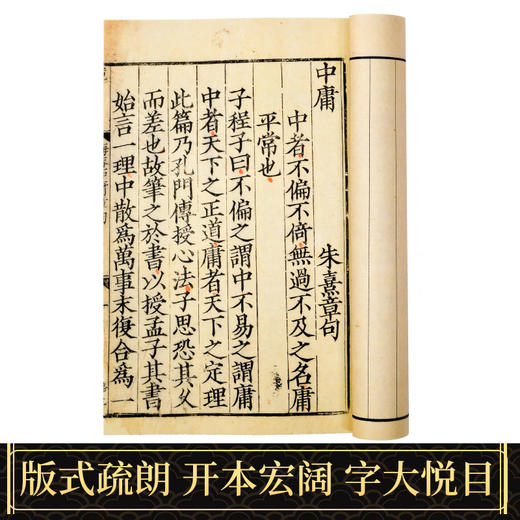 中庸 朱熹章句
中者不偏不倚無過不及之名庸
平常也
子程子曰不偏之謂中不易之謂庸
中者天下之正道庸者天下之定理
此篇乃孔門傳授心法子思恐其久
而差也故筆之於書以授孟子其書
始言一理中散爲萬事末復合爲一
版式疏朗 开本宏阔 字大悦目